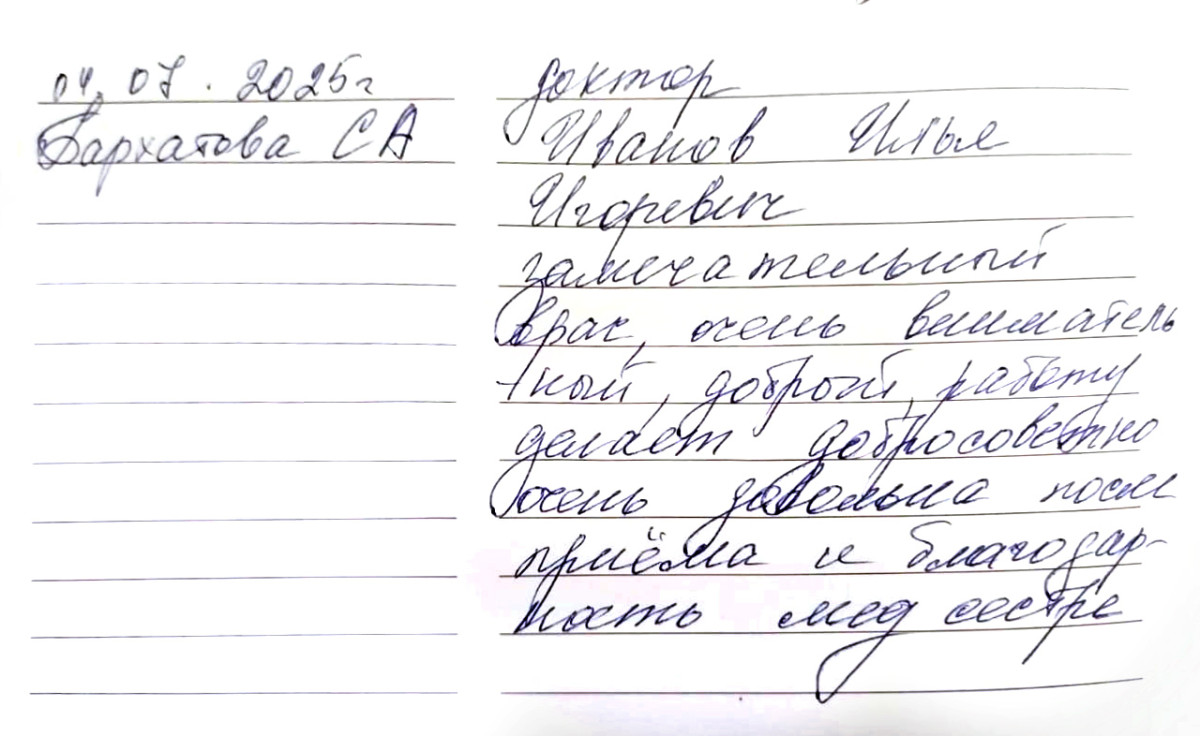 04.07.2025г
Бархатова СА
доктор
Иванов Илья
Игоревич
замечательный
врач, очень вниматель
ный, добрый, работу
делает добросовестно
очень довольна посл
приёма и благодар-
ность мед сестре